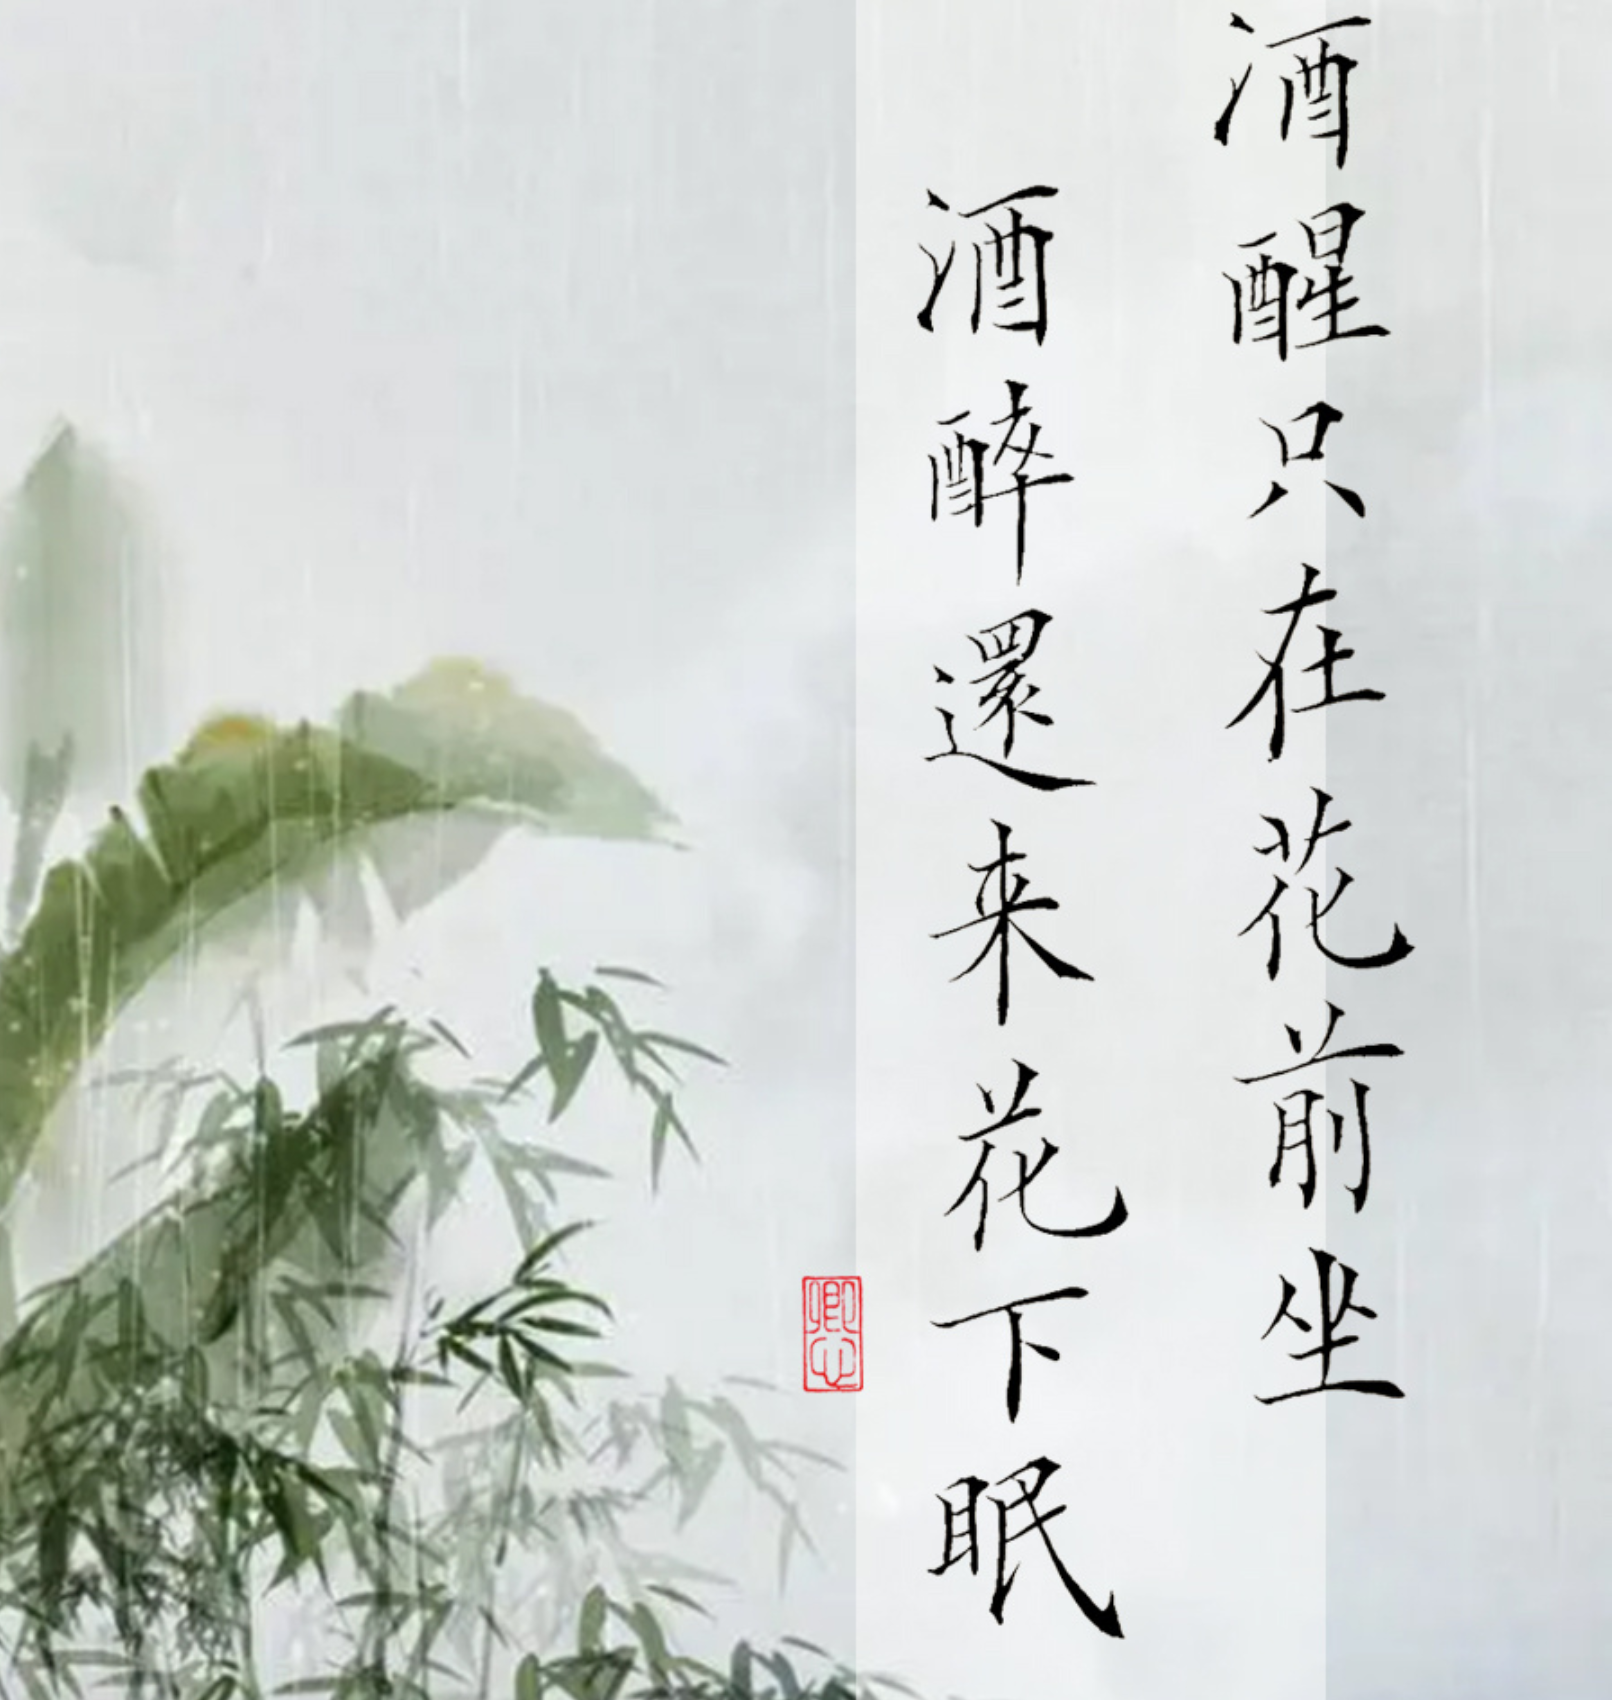 酒醒只在花前坐
酒醉還来花下眠